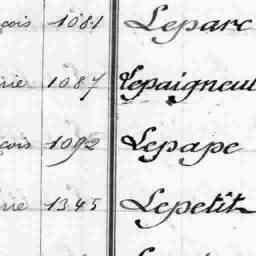 çois 1081 Leparc
rie 1087 Lepaigneul
çois 1092 Lepape
rie 1345 Lepetit